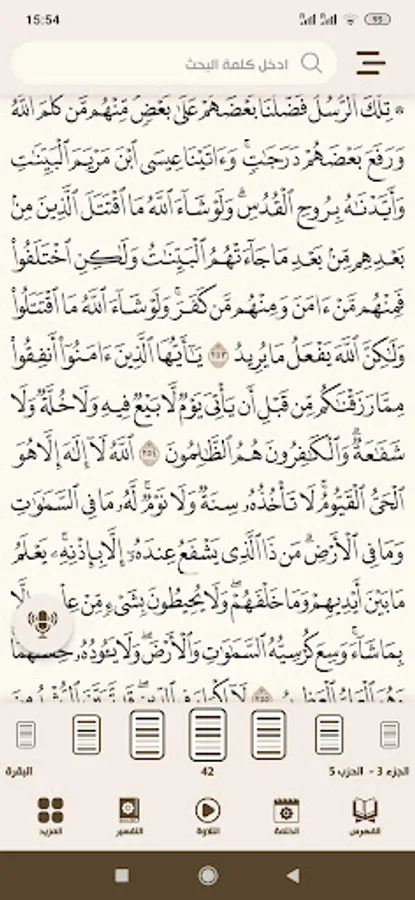 15:54
93
ادخل كلمة البحث
۞ تِلْكَ ٱلرُّسُلُ فَضَّلْنَا بَعْضَهُمْ عَلَىٰ بَعْضٍ مِّنْهُم مَّن كَلَّمَ ٱللَّهُ
وَرَفَعَ بَعْضَهُمْ دَرَجَٰتٍ وَءَاتَيْنَا عِيسَى ٱبْنَ مَرْيَمَ ٱلْبَيِّنَٰتِ
وَأَيَّدْنَٰهُ بِرُوحِ ٱلْقُدُسِ وَلَوْ شَآءَ ٱللَّهُ مَا ٱقْتَتَلَ ٱلَّذِينَ مِنۢ
بَعْدِهِم مِّنۢ بَعْدِ مَا جَآءَتْهُمُ ٱلْبَيِّنَٰتُ وَلَٰكِنِ ٱخْتَلَفُوا۟
فَمِنْهُم مَّنْ ءَامَنَ وَمِنْهُم مَّن كَفَرَ وَلَوْ شَآءَ ٱللَّهُ مَا ٱقْتَتَلُوا۟
وَلَٰكِنَّ ٱللَّهَ يَفْعَلُ مَا يُرِيدُ ٢٥٣ يَٰٓأَيُّهَا ٱلَّذِينَ ءَامَنُوٓا۟ أَنفِقُوا۟
مِمَّا رَزَقْنَٰكُم مِّن قَبْلِ أَن يَأْتِىَ يَوْمٌ لَّا بَيْعٌ فِيهِ وَلَا خُلَّةٌ وَلَا
شَفَٰعَةٌ وَٱلْكَٰفِرُونَ هُمُ ٱلظَّٰلِمُونَ ٢٥٤ ٱللَّهُ لَآ إِلَٰهَ إِلَّا هُوَ
ٱلْحَىُّ ٱلْقَيُّومُ لَا تَأْخُذُهُۥ سِنَةٌ وَلَا نَوْمٌ لَّهُۥ مَا فِى ٱلسَّمَٰوَٰتِ
وَمَا فِى ٱلْأَرْضِ مَن ذَا ٱلَّذِى يَشْفَعُ عِندَهُۥٓ إِلَّا بِإِذْنِهِۦ يَعْلَمُ
مَا بَيْنَ أَيْدِيهِمْ وَمَا خَلْفَهُمْ وَلَا يُحِيطُونَ بِشَىْءٍ مِّنْ
بِمَا شَآءَ وَسِعَ كُرْسِيُّهُ ٱلسَّمَٰوَٰتِ وَٱلْأَرْضَ وَلَا يَـُٔودُهُۥ حِفْظُهُمَا
وَهُوَ ٱلْعَلِىُّ ٱلْعَظِيمُ ٢٥٥ لَآ إِكْرَاهَ فِى ٱلدِّينِ قَد تَّبَيَّنَ ٱلرُّشْدُ مِنَ
الجزء 3 - الحزب 5
42
البقرة
الفهرس
الختمة
التلاوة
التفسير
المزيد